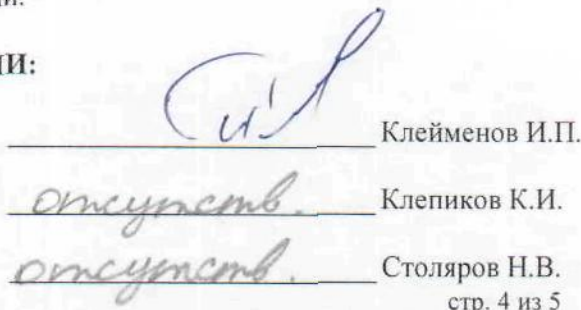 ИИ:
Клейменов И.П.
отсутств. Клепиков К.И.
отсутств. Столяров Н.В.
стр. 4 из 5